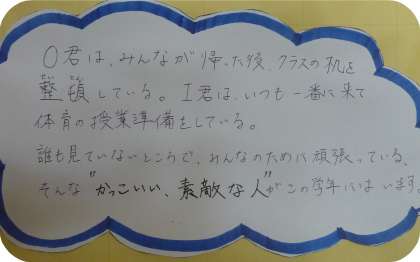 O君は、みんなが帰った後、クラスの机を
整頓している。I君は、いつも一番に来て
体育の授業準備をしている。
誰も見ていないところで、みんなのために頑張っている、
そんな"かっこいい、素敵な人"がこの学年にはいます。